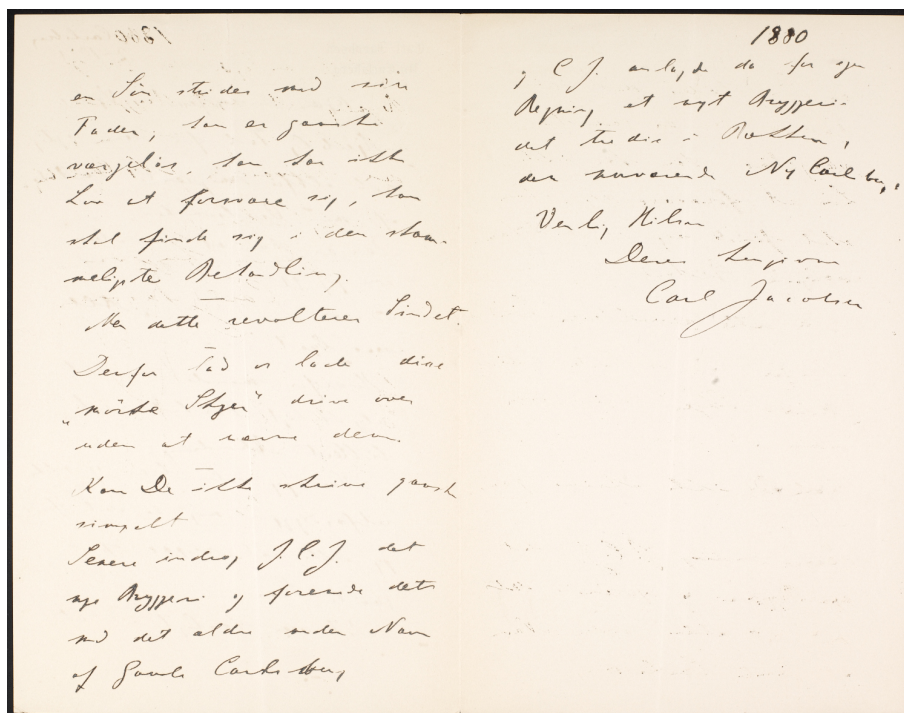 en Sön strider med sin
Fader, han er ganske
værgelös, han har ikke
Lov at forsvare sig, han
skal finde sig i den skam-
meligste Behandling.
Men dette revolterer Sindet.
Derfor lad os lade disse
"mörke Skyer" drive over
uden at nævne dem.
Kan De ikke skrive ganske
simpelt
Senere inddrog J.C.J. det
nye Bryggeri og forenede dette
med det ældre under Navn
af Gamle Carlsberg
1880
og C J. anlagde da for egen
Regning et nyt Bryggeri.
det tredie i Rækken,
den nuværende Ny Carlsberg.
Venlig Hilsen
Deres hengivne
Carl Jacobsen